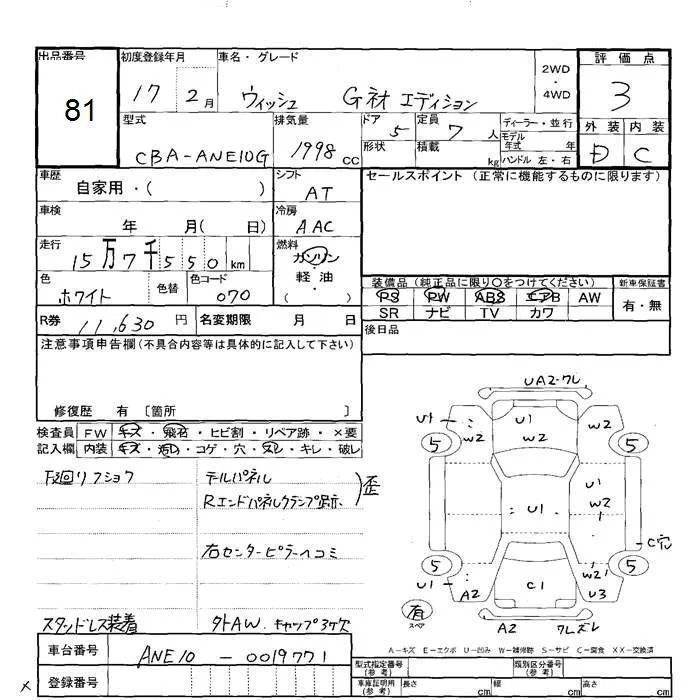 出品番号 初度登録年月 車名・グレード 評価点
81 17 2月 ウィッシュ G ネオ エディション 2WD ・ 4WD 3
型式 排気量 ドア 定員 ディーラー・並行 外装 内装
CBA-ANE10G 1998 CC 5 7 人 モデル年式 年 D C
形状 積載 kg ハンドル 左・右
車歴 シフト セールスポイント (正常に機能するものに限ります)
自家用・( ) AT
車検 冷房
年 月( 日) AAC
走行 燃料
15万7千550 km ガソリン
軽・油
( )
色 色替 色コード
ホワイト 070
装備品 (純正品に限り○をつけてください) 新車保証書
PS PW ABS エアB AW 有・無
SR ナビ TV カワ
R券 11,630 円 名変期限 月 日
後日品
注意事項申告欄(不具合内容等は具体的に記入して下さい)
修復歴 有 〔箇所 〕
検査員 FW キズ・飛石・ヒビ割・リペア跡・×要
記入欄 内装 キズ・汚れ・コゲ・穴・スレ・キレ・破レ
下廻リフショウ
テールパネル
Rエンドパネルクランプ跡示
歪
右センターピラーヘコミ
スタンドレス装着
外AW.キャップ3ケ欠
UA2・ワレ
U1 U1 W2 W2 W2
5 5
U1 U1 W2
C穴
5 5
U1 A2 C1 W2 U3
有
スペア
A2 ワレズレ
A-キズ E-エクボ U-凹み W-補修跡 S-サビ C-腐食 XX-交換済
車台番号 ANE10-0019771
登録番号
型式指定番号 (参考) 類別区分番号 (参考)
車庫証明用 (参考) 長さ cm 幅 cm 高さ cm
×